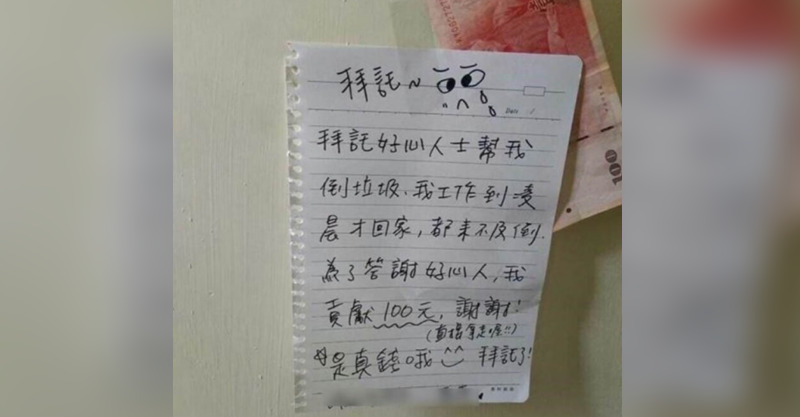 拜託~
Date
拜託好心人士幫我
倒垃圾.我工作到凌
晨才回家,都來不及倒.
為了答謝好心人,我
貢獻100元,謝謝!
(直接拿走喔!!)
是真錢哦^^ 拜託了!
100